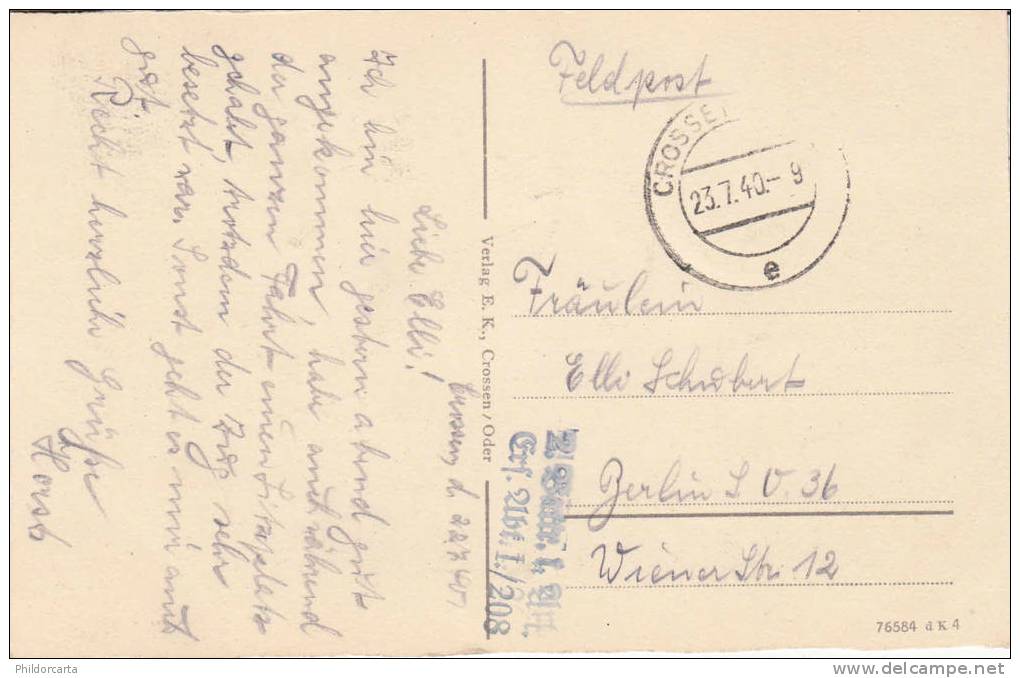 Feldpost
CROSSEN
23.7.40.-9
e
Fräulein
Elli Schubert
Berlin S.O. 36
Wiener Str. 12
Verlag E. K., Crossen / Oder
Ers. Abt. I./208
76584 d K 4
Crossen, d. 22.7.40.
Liebe Elli!
Ich bin hier gestern abend gut
angekommen, habe auch während
der ganzen Fahrt einen Sitzplatz
gehabt, trotzdem der Zug sehr
besetzt war. Sonst geht es mir auch
gut.
Recht herzliche Grüße
Horst
Phildorcarta
delcampe.net